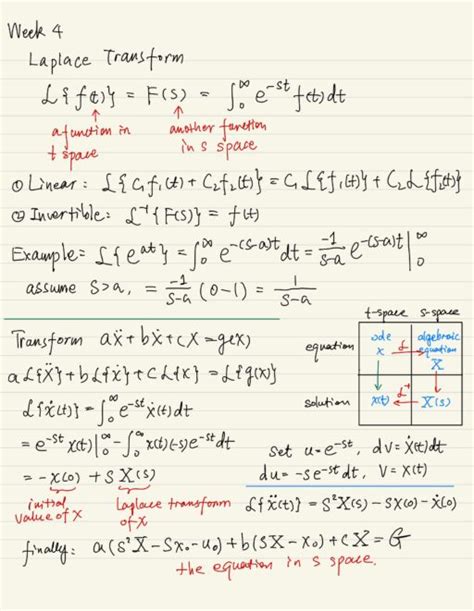 Week 4
Laplace Transform
L{f(t)} = F(s) = ∫₀^∞ e^-st f(t)dt
a function in t space
another function in s space
① Linear: L{C₁f₁(t) + C₂f₂(t)} = C₁L{f₁(t)} + C₂L{f₂(t)}
② Invertible: L⁻¹{F(s)} = f(t)
Example: L{e^at} = ∫₀^∞ e^-(s-a)t dt = -1/(s-a) e^-(s-a)t |₀^∞
assume s>a, = -1/(s-a) (0-1) = 1/(s-a)
t-space s-space
equation
ode x
L
algebraic equation X
solution
x(t)
L⁻¹
X(s)
Transform aẍ + bẋ + cx = g(x)
aL{ẍ} + bL{ẋ} + cL{x} = L{g(x)}
L{ẋ(t)} = ∫₀^∞ e^-st ẋ(t)dt
= e^-st x(t)|₀^∞ - ∫₀^∞ x(t)(-s)e^-st dt
= -x(0) + sX(s)
initial value of X
Laplace transform of X
set u=e^-st, dv=ẋ(t)dt
du=-se^-st dt, v=x(t)
L{ẍ(t)} = s²X(s) - sx(0) - ẋ(0)
finally: a(s²X - sx₀ - u₀) + b(sX - x₀) + cX = G
the equation in s space.